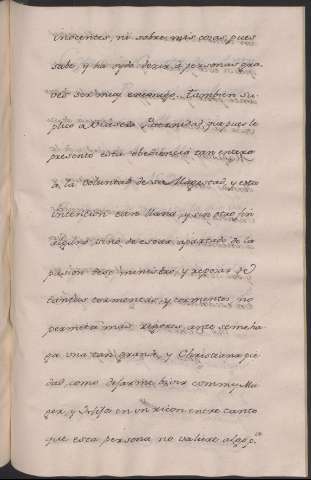 inocentes, ni sobre mis cosas, pues
sabe, y ha oydo dezir à personas gra
ves ser muy enemigo. Tambien su
plico a Vuestra Paternidad, que pues le
presento esta obediencia tan entera
à la voluntad de su Magestad, y esta
intencion tan llana, y sin otro fin
alguno, sino de estar apartado de la
pasion de ministros, y reposar de
tantas tormentas, y tormentos no
permita mas rigores, antes se me ha
ga una tan grande, y Christiana pie
dad, como dejarme bivir con my Mu
ger, y hijos en un ricon entre tanto
que esta persona no valiere algo p.